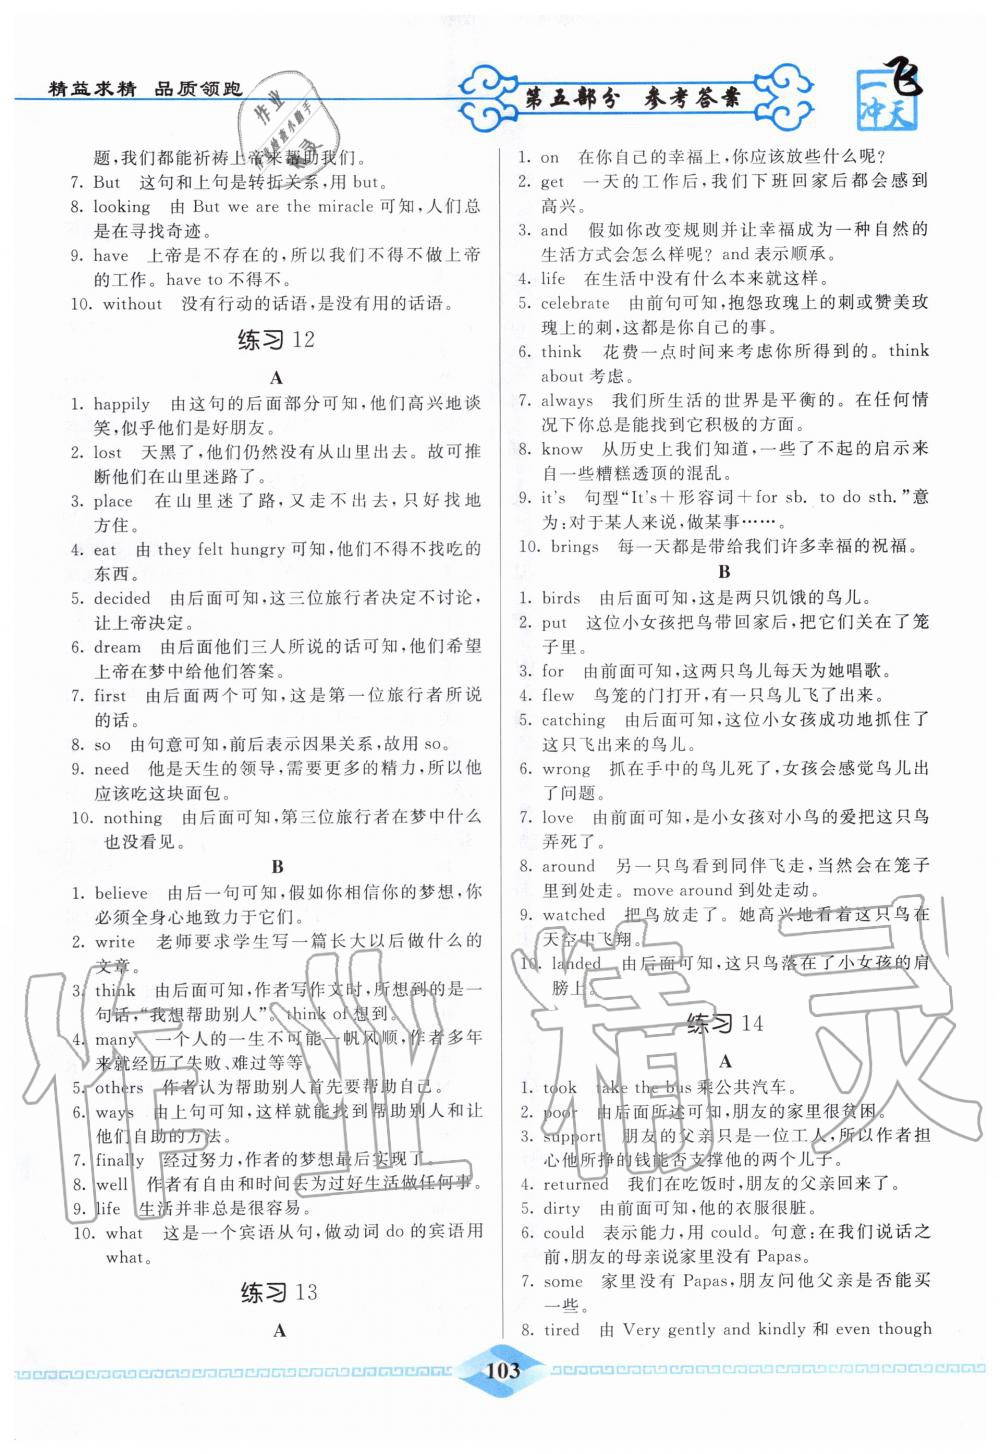 精益求精 品质领跑
第五部分 参考答案
一飞冲天
题,我们都能祈祷上帝来帮助我们。
7. But 这句和上句是转折关系,用 but。
8. looking 由 But we are the miracle 可知,人们总
是在寻找奇迹。
9. have 上帝是不存在的,所以我们不得不做上帝
的工作。have to 不得不。
10. without 没有行动的话语,是没有用的话语。
练习 12
A
1. happily 由这句的后面部分可知,他们高兴地谈
笑,似乎他们是好朋友。
2. lost 天黑了,他们仍然没有从山里出去。故可推
断他们在山里迷路了。
3. place 在山里迷了路,又走不出去,只好找地
方住。
4. eat 由 they felt hungry 可知,他们不得不找吃的
东西。
5. decided 由后面可知,这三位旅行者决定不讨论,
让上帝决定。
6. dream 由后面他们三人所说的话可知,他们希望
上帝在梦中给他们答案。
7. first 由后面两个可知,这是第一位旅行者所说
的话。
8. so 由句意可知,前后表示因果关系,故用 so。
9. need 他是天生的领导,需要更多的精力,所以他
应该吃这块面包。
10. nothing 由后面可知,第三位旅行者在梦中什么
也没看见。
B
1. believe 由后一句可知,假如你相信你的梦想,你
必须全身心地致力于它们。
2. write 老师要求学生写一篇长大以后做什么的
文章。
3. think 由后面可知,作者写作文时,所想到的是一
句话,“我想帮助别人”。think of 想到。
4. many 一个人的一生不可能一帆风顺,作者多年
来就经历了失败、难过等等。
5. others 作者认为帮助别人首先要帮助自己。
6. ways 由上句可知,这样就能找到帮助别人和让
他们自助的方法。
7. finally 经过努力,作者的梦想最后实现了。
8. well 作者有自由和时间去为过好生活做任何事。
9. life 生活并非总是很容易。
10. what 这是一个宾语从句,做动词 do 的宾语用
what。
练习 13
A
1. on 在你自己的幸福上,你应该放些什么呢?
2. get 一天的工作后,我们下班回家后都会感到
高兴。
3. and 假如你改变规则并让幸福成为一种自然的
生活方式会怎么样呢? and 表示顺承。
4. life 在生活中没有什么本来就这样。
5. celebrate 由前句可知,抱怨玫瑰上的刺或赞美玫
瑰上的刺,这都是你自己的事。
6. think 花费一点时间来考虑你所得到的。think
about 考虑。
7. always 我们所生活的世界是平衡的。在任何情
况下你总是能找到它积极的方面。
8. know 从历史上我们知道,一些了不起的启示来
自一些糟糕透顶的混乱。
9. it's 句型“It's+形容词+for sb. to do sth.”意
为:对于某人来说,做某事……。
10. brings 每一天都是带给我们许多幸福的祝福。
B
1. birds 由后面可知,这是两只饥饿的鸟儿。
2. put 这位小女孩把鸟带回家后,把它们关在了笼
子里。
3. for 由前面可知,这两只鸟儿每天为她唱歌。
4. flew 鸟笼的门打开,有一只鸟儿飞了出来。
5. catching 由后面可知,这位小女孩成功地抓住了
这只飞出来的鸟儿。
6. wrong 抓在手中的鸟儿死了,女孩会感觉鸟儿出
了问题。
7. love 由前面可知,是小女孩对小鸟的爱把这只鸟
弄死了。
8. around 另一只鸟看到同伴飞走,当然会在笼子
里到处走。move around 到处走动。
9. watched 把鸟放走了。她高兴地看着这只鸟在
天空中飞翔。
10. landed 由后面可知,这只鸟落在了小女孩的肩
膀上。
练习 14
A
1. took take the bus 乘公共汽车。
2. poor 由后面所述可知,朋友的家里很贫困。
3. support 朋友的父亲只是一位工人,所以作者担
心他所挣的钱能否支撑他的两个儿子。
4. returned 我们在吃饭时,朋友的父亲回来了。
5. dirty 由前面可知,他的衣服很脏。
6. could 表示能力,用 could。句意:在我们说话之
前,朋友的母亲说家里没有 Papas。
7. some 家里没有 Papas,朋友问他父亲是否能买
一些。
8. tired 由 Very gently and kindly 和 even though
103
作业精灵